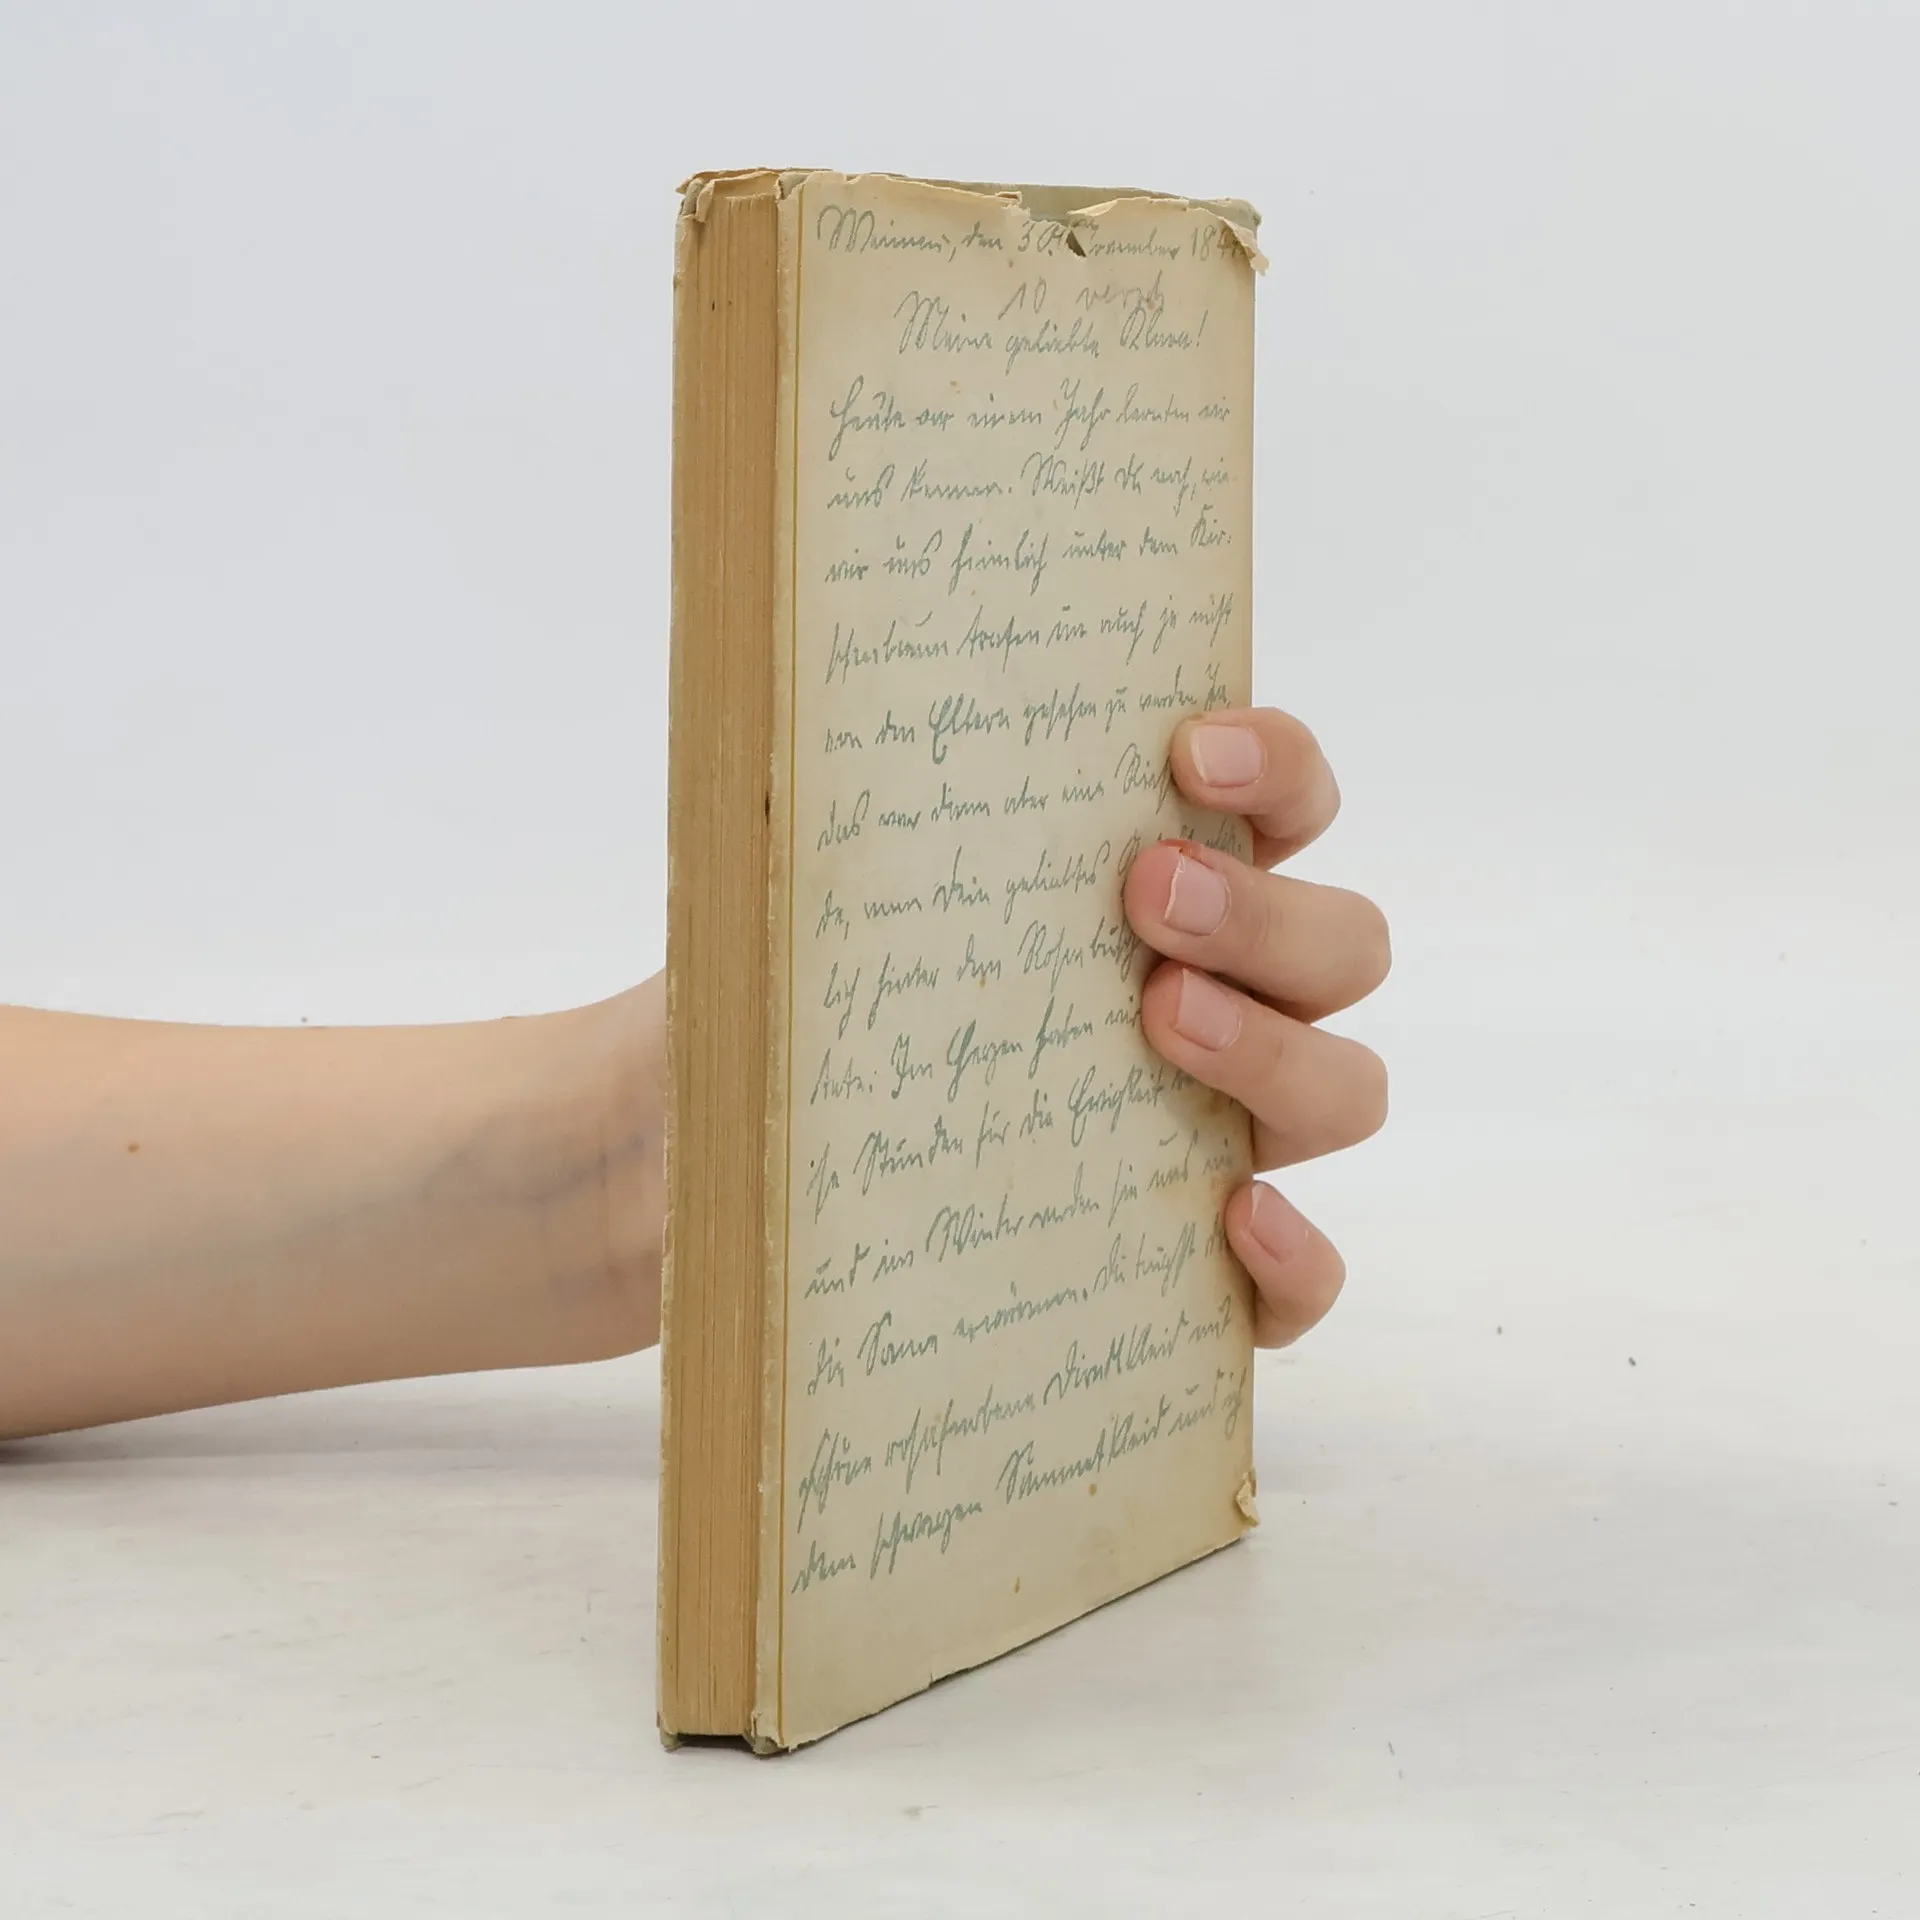 Weimar, den 30. November 184
10
Meine geliebte Klara!
Heute vor einem Jahr lernten wir
uns kennen. Weißt Du noch, wie
wir uns heimlich unter dem Kir-
schenbaum trafen um auch ja nicht
von den Eltern gesehen zu werden Ja,
das war dann aber eine
de, wenn Dein geliebtes
lich hinter dem Rosenbusch
Im Herzen haben wir
Stunden für die Ewigkeit
und im Winter werden sie uns wie
die Sonne erwärmen. Du trugst das
schöne rosafarbene Kleid mit
dem schwarzen Sammet und ich